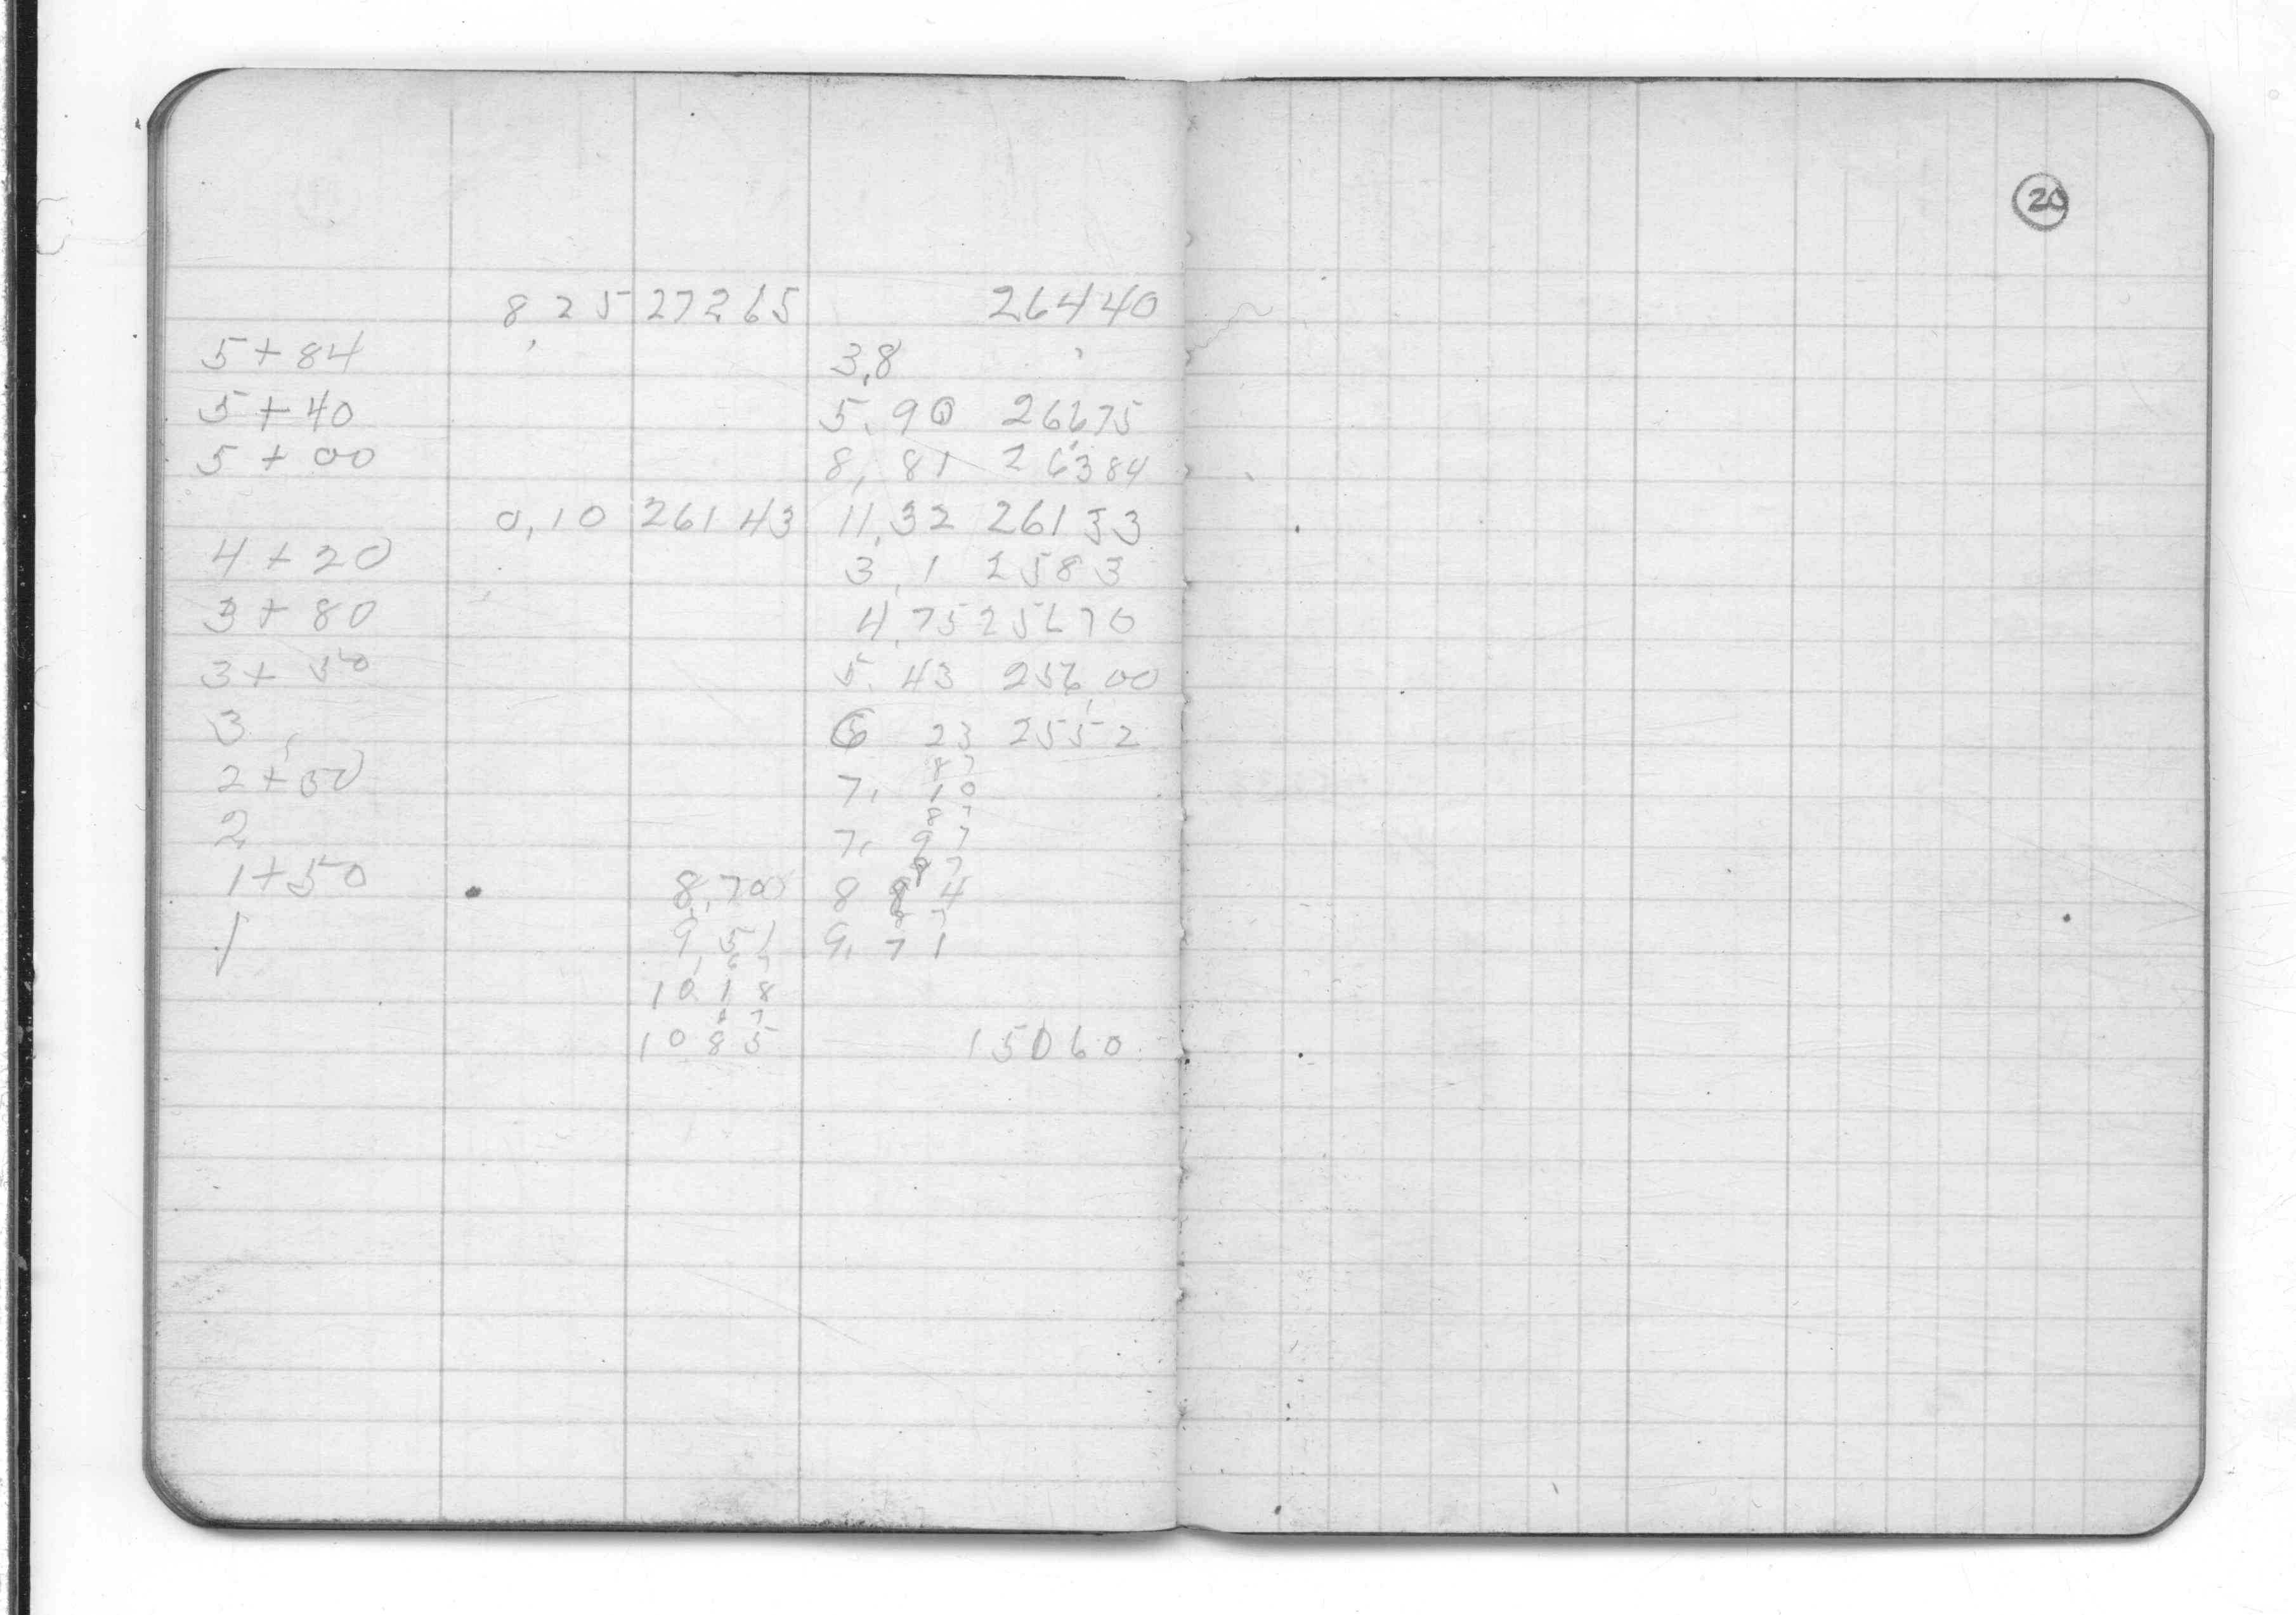 20
8,25 27265 26440
5+84 3,8
5+40 5.90 26675
5+00 8,81 26384
0,10 26143 11,32 26133
4+20 3,1 2583
3+80 4,75 25670
3+50 5.43 256,00
3 6 23 2552
87
2+50 7, 10
87
2 7, 97
87
1+50 8,70 8 84
1 9,51 9, 71
67
10.18
67
10.85 15060